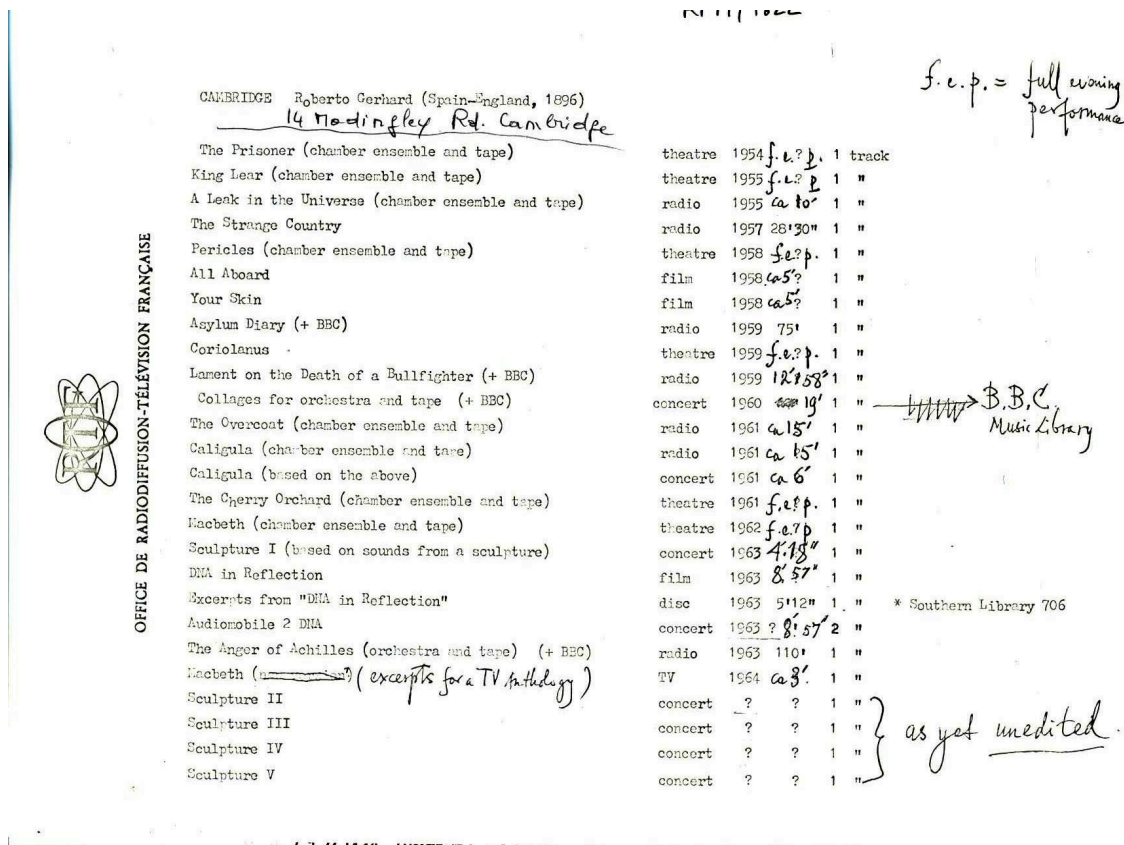 f.e.p. = full evening
performance
CAMBRIDGE Roberto Gerhard (Spain-England, 1896)
14 Madingley Rd. Cambridge
The Prisoner (chamber ensemble and tape) theatre 1954 f.e.?p. 1 track
King Lear (chamber ensemble and tape) theatre 1955 f.e.?p 1 "
A Leak in the Universe (chamber ensemble and tape) radio 1955 ca 10' 1 "
The Strange Country radio 1957 28'30" 1 "
Pericles (chamber ensemble and tape) theatre 1958 f.e.?p. 1 "
All Aboard film 1958 ca 5'? 1 "
Your Skin film 1958 ca 5'? 1 "
Asylum Diary (+ BBC) radio 1959 75' 1 "
Coriolanus theatre 1959 f.e.?p. 1 "
Lament on the Death of a Bullfighter (+ BBC) radio 1959 12'58" 1 "
Collages for orchestra and tape (+ BBC) concert 1960 19' 1 " B.B.C.
Music Library
The Overcoat (chamber ensemble and tape) radio 1961 ca 15' 1 "
Caligula (chamber ensemble and tape) radio 1961 ca 15' 1 "
Caligula (based on the above) concert 1961 ca 6' 1 "
The Cherry Orchard (chamber ensemble and tape) theatre 1961 f.e.?p. 1 "
Macbeth (chamber ensemble and tape) theatre 1962 f.e.?p 1 "
Sculpture I (based on sounds from a sculpture) concert 1963 4'.18" 1 "
DNA in Reflection film 1963 8'.57" 1 "
Excerpts from "DNA in Reflection" disc 1963 5'12" 1 " * Southern Library 706
Audiomobile 2 DNA concert 1963 ? 8'.57" 2 "
The Anger of Achilles (orchestra and tape) (+ BBC) radio 1963 110' 1 "
Macbeth (excerpts for a TV Anthology) TV 1964 ca 3'. 1 "
Sculpture II concert ? ? 1 "
Sculpture III concert ? ? 1 "
as yet unedited.
Sculpture IV concert ? ? 1 "
Sculpture V concert ? ? 1 "
OFFICE DE RADIODIFFUSION-TÉLÉVISION FRANÇAISE
RTF